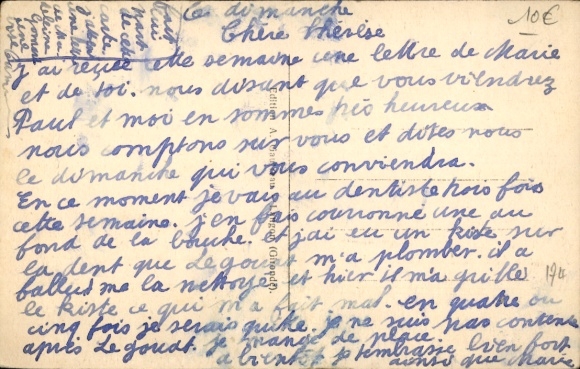 Ce dimanche
10€
Chère Thérèse
j'ai reçue cette semaine une lettre de Marie
et de toi. nous disant que vous viendrez
Paul et moi en sommes très heureux
nous comptons sur vous et dites nous
le dimanche qui vous conviendra.
En ce moment je vais au dentiste trois fois
cette semaine. j'en fais couronné une au
fond de la bouche. et j'ai eu un kiste sur
la dent que Legouat m'a plomber. il a
fallus me la nettoyé et hier il m'a grillé
le kiste ce qui m'a fait mal. en quatre ou
cinq fois je serais quitte. je ne suis pas contente
après Legouat. je manque de place
a bientôt je t'embrasse bien fort
ainsi que Marie
Edition A.
(Gironde).
174